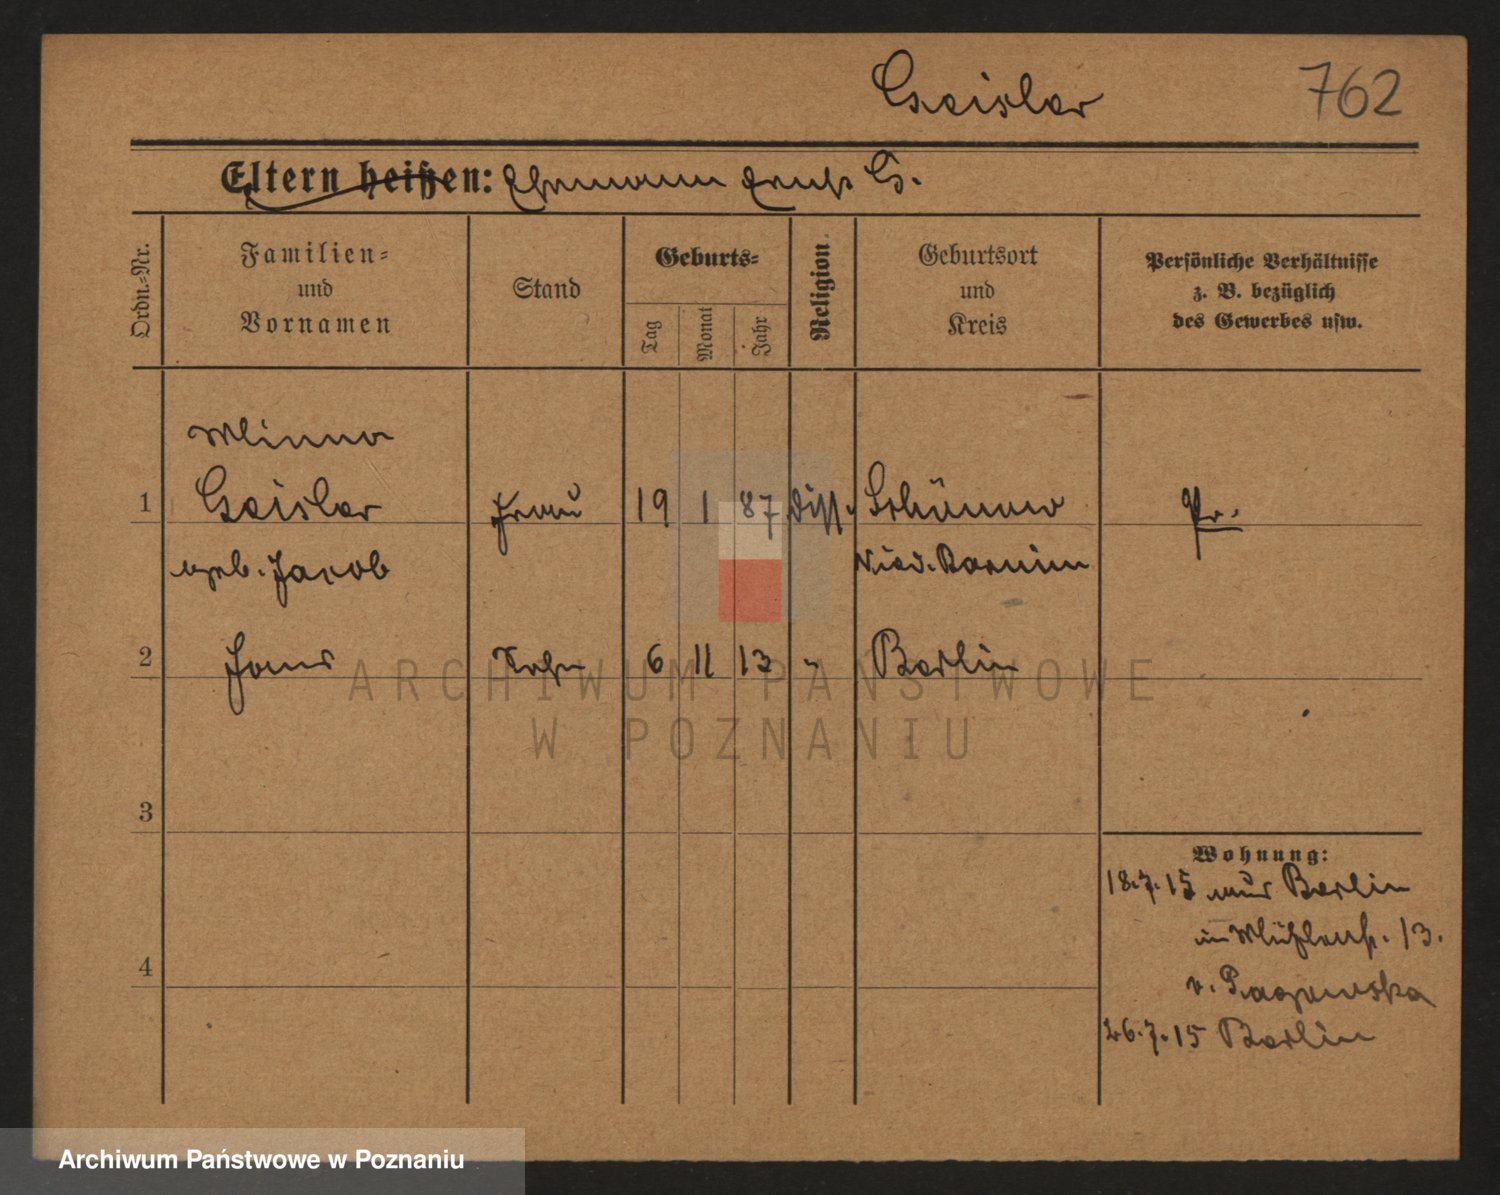 Geisler 762
Eltern heißen: Ehemann Ernst G.
Ordn.-Nr.
Familien-
und
Vornamen
Stand
Geburts-
Tag
Monat
Jahr
Religion
Geburtsort
und
Kreis
Persönliche Verhältnisse
z. B. bezüglich
des Gewerbes usw.
Minna
1 Geisler Frau 19 1 87 Diss. Schönow Pr.
geb. Jacob Nied. Barnim
2 Hans Sohn 6 11 13 " Berlin
3
Wohnung:
18.7.15 aus Berlin
in Mühlenstr. 13.
4
v.
26.7.15 Berlin
ARCHIWUM PAŃSTWOWE
W POZNANIU
Archiwum Państwowe w Poznaniu